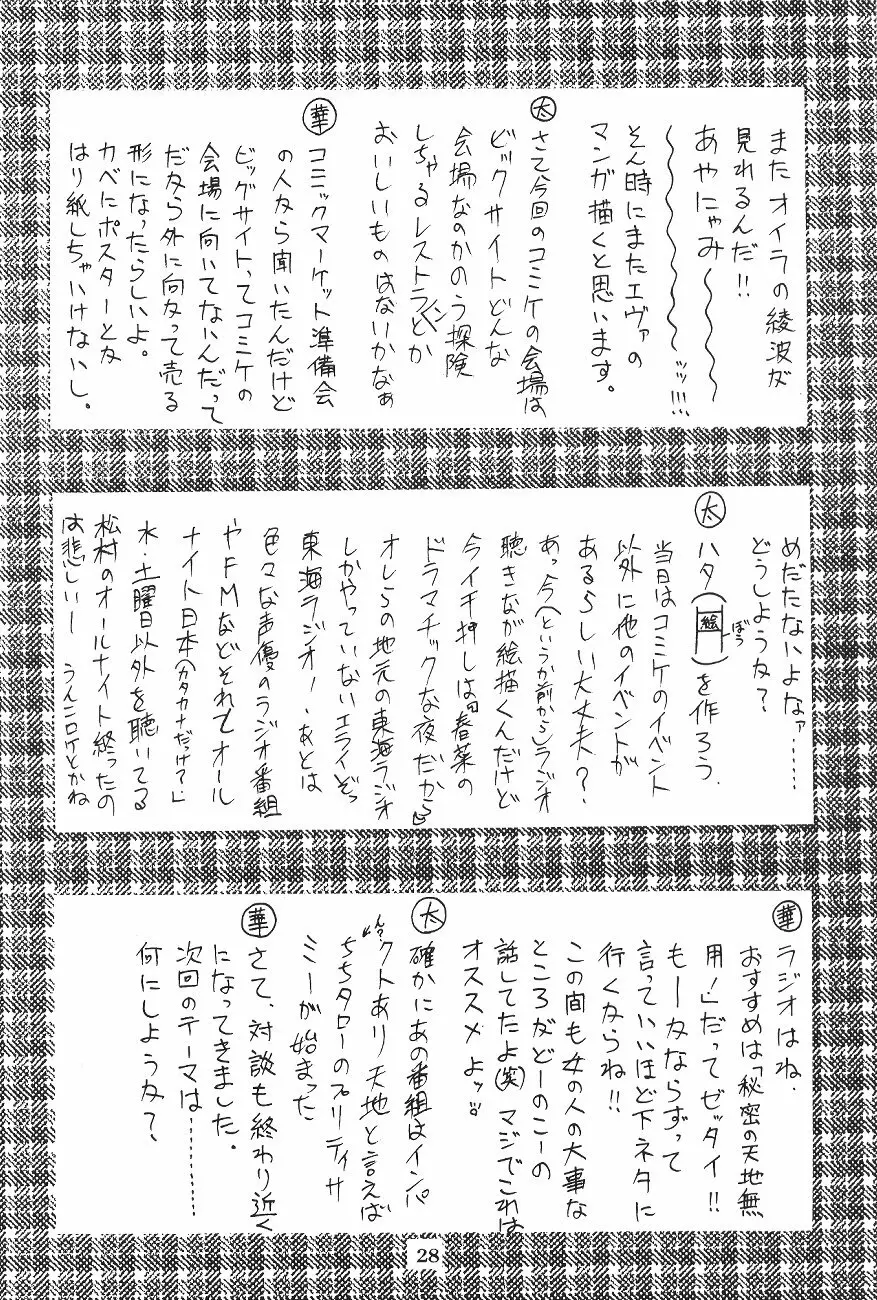 またオイラの綾波が
見れるんだ!!
あやにゃみ〜〜〜〜
〜〜〜〜〜〜ッッ!!!
そん時にまたエヴァの
マンガ描くと思います。
太 さて今回のコミケの会場は
ビックサイトどんな
会場なのかのう探険
しちゃるレストランとか
おいしいものはないかなぁ
華 コミックマーケット準備会
の人から聞いたんだけど
ビッグサイトってコミケの
会場に向いてないんだって
だから外に向かって売る
形になったらしいよ。
カベにポスターとか
はり紙しちゃいけないし。
めだたないよなァ……
どうしようか?
太 ハタ(絵)を作ろう.
ぼう
当日はコミケのイベント
以外に他のイベントが
あるらしい大丈夫?
あっ今(というか前から)ラジオ
聴きながら絵描くんだけど
今イチ押しは「春菜の
ドラマチックな夜だから」
オレらの地元の東海ラジオ
しかやっていないエライぞっ
東海ラジオ!・あとは
色々な声優のラジオ番組
やFMなどそれてオール
ナイト日本(カタカナだっけ?)
水・土曜日以外を聴いてる
松村のオールナイト終ったの
は悲しいー うんこロケとかね
華 ラジオはね.
おすすめは「秘密の天地無
用!」だってゼッタイ!!
もーかならずって
言っていいほど下ネタに
行くからね!!
この間も女の人の大事な
ところがどーのこーの
話してたよ(笑)マジでこれは
オススメよッ!!
太 確かにあの番組はインパ
クトあり天地と言えば
ちちタローのプリティサ
ミーが始まった
華 さて、対談も終わり近く
になってきました。
次回のテーマは…………
何にしようか?
28